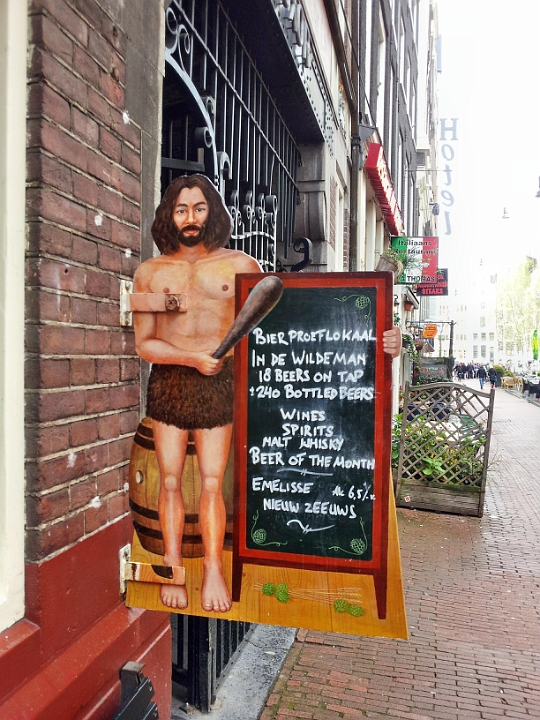 BIERPROEFLOKAAL
IN DE WILDEMAN
18 BEERS ON TAP
+240 BOTTLED BEERS
WINES
SPIRITS
MALT WHISKY
BEER OF THE MONTH
EMELISSE Alc 6,5%
NIEUW ZEEUWS
Hotel
Italiaans
Restaurant
THOMAS
STEAKS